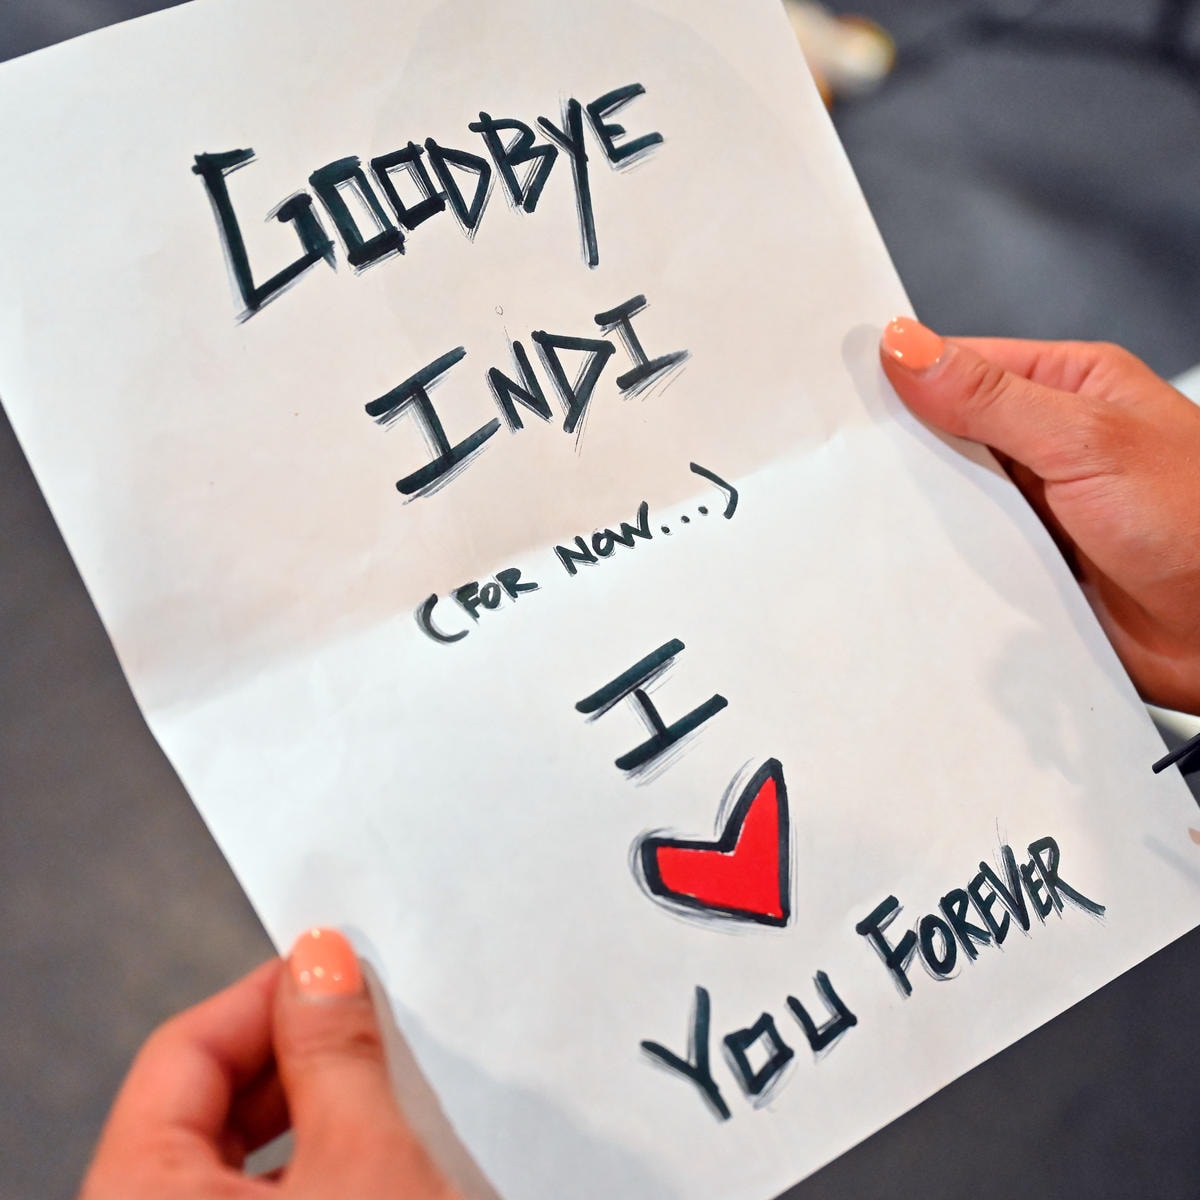 GOODBYE
INDI
(FOR NOW...)
I
❤
YOU FOREVER